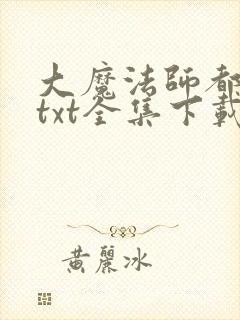 大魔法師都
txt全集下載
黃麗冰